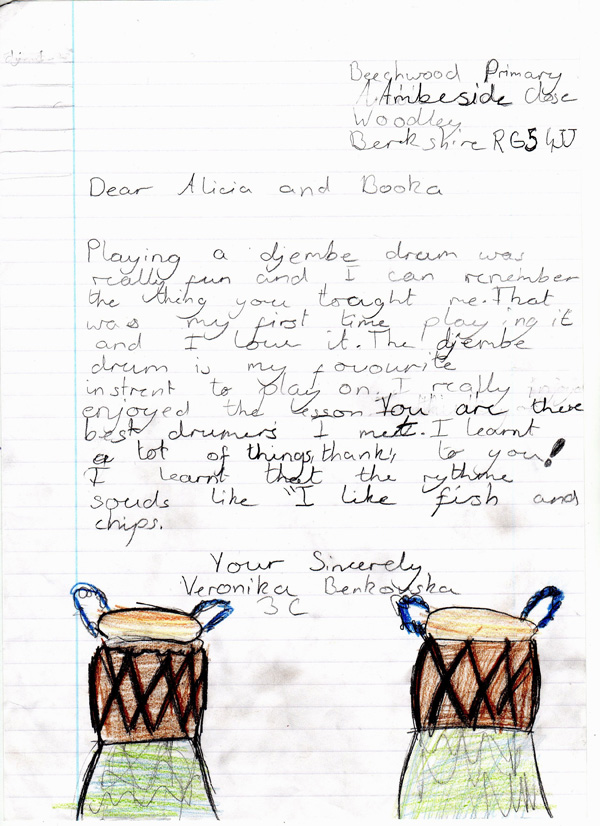 Beechwood Primary
Ambeside Close
Woodley
Berkshire RG5 4JJ
Dear Alicia and Booka
Playing a djembe drum was
really fun and I can remember
the thing you tought me. That
was my first time playing it
and I love it. The djembe
drum is my favourite
instrent to play on. I really
enjoyed the lesson You are there
best drumers I met. I learnt
a lot of things, thank, to you!
I learnt that the rythme
souds like "I like fish and
chips.
Your Sincerely
Veronika Benkowska
3C